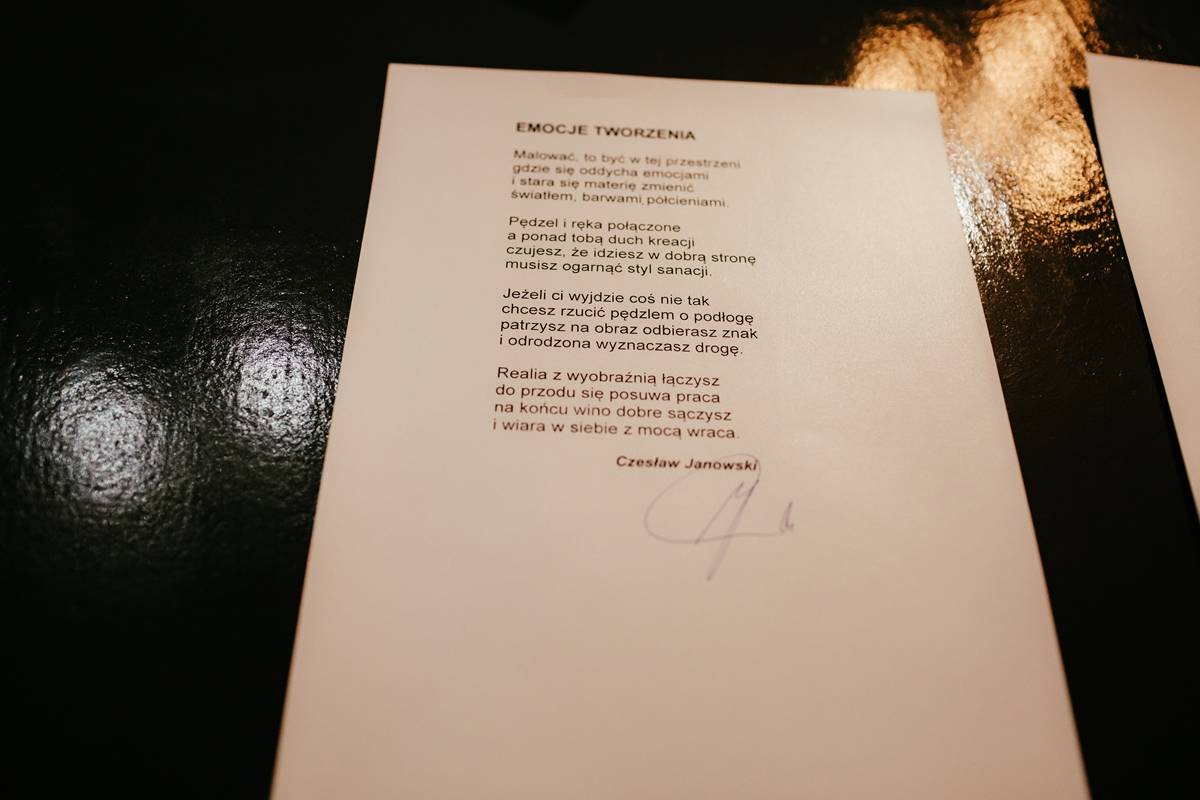 EMOCJE TWORZENIA
Malować, to być w tej przestrzeni
gdzie się oddycha emocjami
i stara się materię zmienić
światłem, barwami,półcieniami.
Pędzel i ręka połączone
a ponad tobą duch kreacji
czujesz, że idziesz w dobrą stronę
musisz ogarnąć styl sanacji.
Jeżeli ci wyjdzie coś nie tak
chcesz rzucić pędzlem o podłogę
patrzysz na obraz odbierasz znak
i odrodzona wyznaczasz drogę.
Realia z wyobraźnią łączysz
do przodu się posuwa praca
na końcu wino dobre sączysz
i wiara w siebie z mocą wraca.
Czesław Janowski